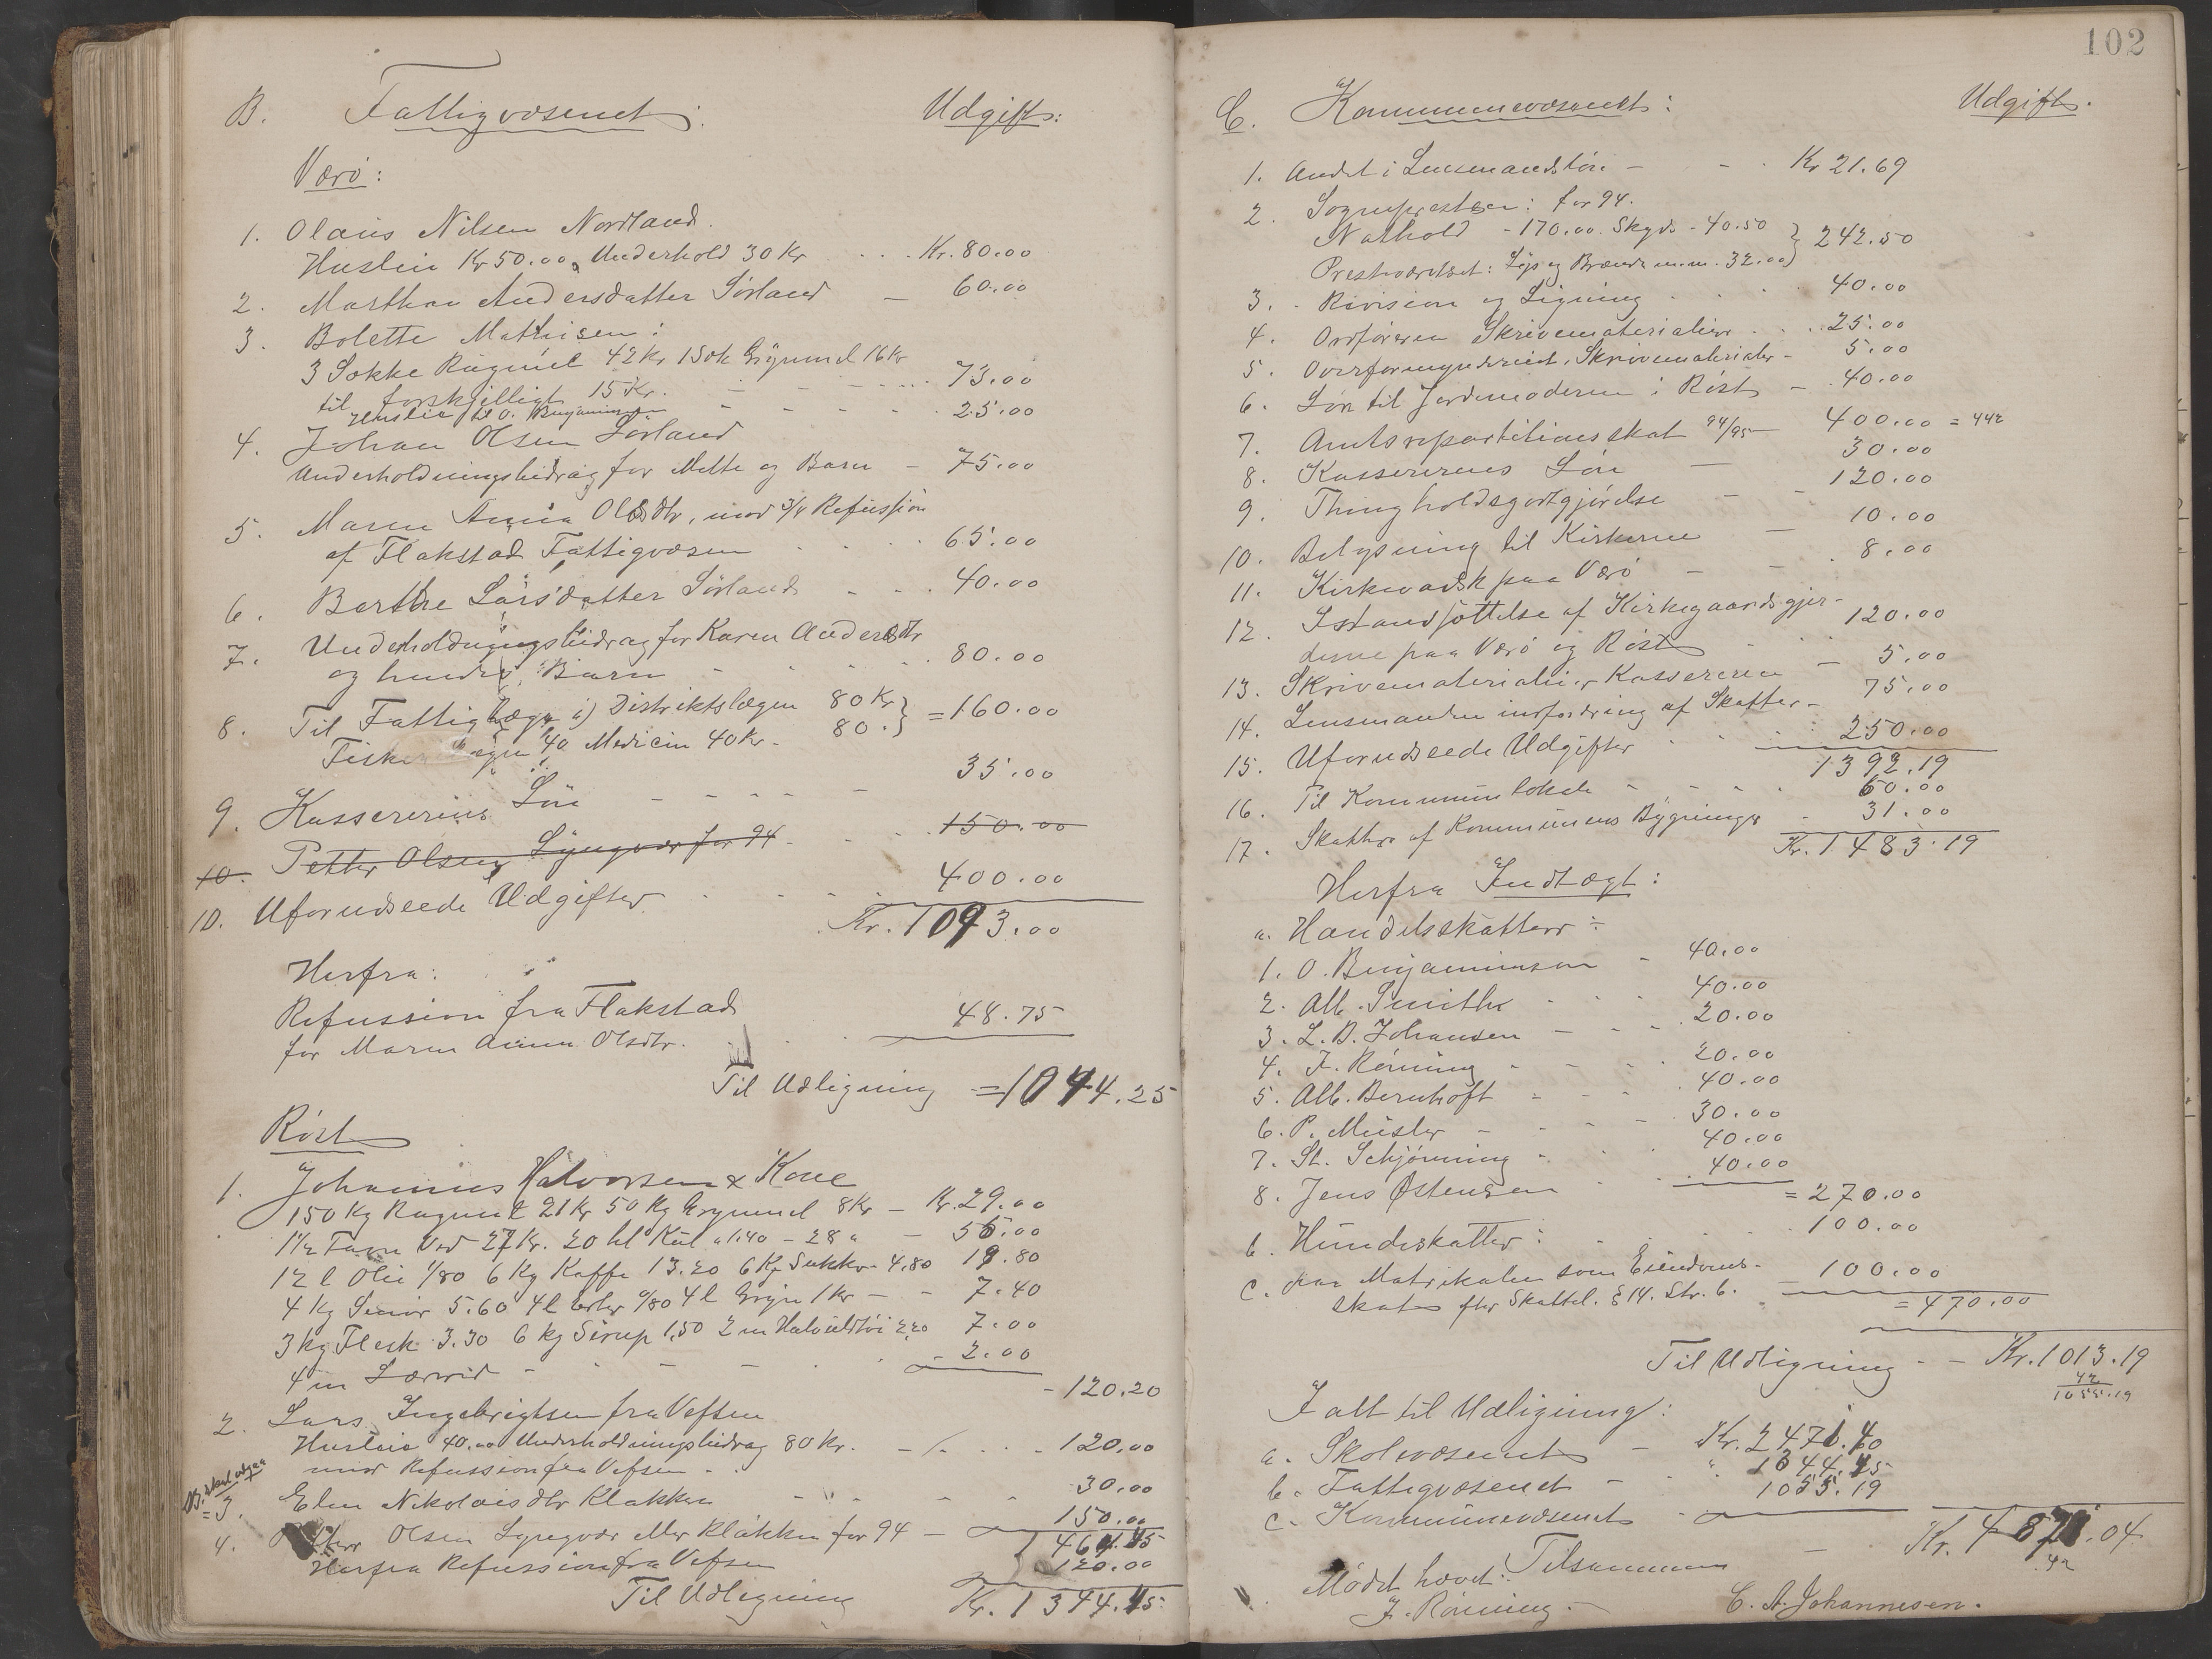 B. Fattigvæsenet: Udgift:
Værø:
1. Olaus Nilsen Nordland.
Husleie Kr 50.00, Underhold 30 Kr . . . Kr. 80.00
2. Martha Andersdatter Sørland — 60.00
3. Bolette Mathisen:
3 Sække Rugmel 42 Kr 1 Sæk Grynmel 16 Kr
til forskjelligt 15 Kr. — — — 73.00
Husleie til O. Benjaminsen - - - - 25.00
4. Johan Olsen Sørland
Underholdningsbidrag for Mette og Barn — 75.00
5. Maren Anna Olsdtr, mod 3/4 Refussion
af Flakstad Fattigvæsen . . . . 65.00
6. Berthe Larsdatter Sørland - - - 40.00
7. Underholdningsbidrag for Karen Andersdtr
og hendes Barn - - - - 80.00
8. Til Fattiglæge i) Distriktslægen 80 Kr } = 160.00
Fiskerilægen 40 Medicin 40 Kr. - 80. }
9. Kassererens Løn - - - - — 35.00
10. Petter Olsen Lyngvær for 94 - . . 150.00
10. Uforudseede Udgifter . . . . 400.00
Kr. 1093.00
Herfra:
Refussion fra Flakstad
for Maren Anna Olsdtr. . . . 48.75
Til Udligning = 1044.25
Røst
1. Johannes Halvorsen & Kone
150 Kg Rugmel 21 Kr 50 Kg Grynmel 8 Kr — Kr. 29.00
1½ Favn Ved 27 Kr. 20 hl Kul a 1.40 - 28 " — 55.00
12 l Olie 1/80 6 Kg Kaffe 13.20 6 Kg Sukker 4.80 19.80
4 Kg Smør 5.60 4 l Erter 0/80 4 l Gryn 1 Kr — - 7.40
3 Kg Flesk 3.30 6 kg Sirup 1,50 2 m Halvuldtøi 2,20 7.00
4 m Lærred - - - - 2.00
- 120.20
2. Lars Ingebrigtsen fra Vefsen
Husleie 40.00 Underholdningsbidrag 80 Kr. - - - 120.00
mod Refussion fra Vefsen -
NB. skal udgaa
= 3. Elen Nikolaisdtr Klakken - - - - 30.00
4. Petter Olsen Lyngvær eller Klakken for 94 — 150.00
1464.45
Herfra Refussion fra Vefsen 120.00
Til Udligning Kr. 1344.45
102
C. Kommunevæsenet: Udgift.
1. Andel i Lensmandsløn — - . Kr 21.69
2. Sognepresten: for 94.
Nathold - 170.00. Skyds - 40.50 } 242.50
Prestværelset: Lys og Brænde m.m. 32.00 }
3. Revision og Ligning . . . 40.00
4. Ordføreren Skrivematerialier . . . 25.00
5. Overformynderiet, Skrivematerialier - 5.00
6. Løn til Jordemoderen i Røst — . 40.00
7. Amtsrepartitionsskat 94/95 — 400.00 = 442
8. Kassererens Løn — 30.00
9. Thingholdsgodtgjørelse - - 120.00
10. Belysning til Kirkerne — 10.00
11. Kirkevask paa Værø - - 8.00
12. Istandsættelse af Kirkegaardsgjer-
derne paa Værø og Røst - - 120.00
13. Skrivematerialier, Kassereren — 5.00
14. Lensmanden indfordring af Skatter - 75.00
15. Uforudseede Udgifter . . . 250.00
1392.19
16. Til Kommunelokale - - - . 60.00
17. Skatter af Kommunens Bygninger . 31.00
Kr. 1483.19
Herfra Indtægt:
a. Handelsskatter:
1. O. Benjaminsen - 40.00
2. Alb. Smith - - - 40.00
3. L. D. Johansen — - - 20.00
4. J. Rønning - - - . 20.00
5. Alb. Bernhoft - - - 40.00
6. P. Meisler - - - - 30.00
7. St. Schjønning - . . 40.00
8. Jens Østensen . . 40.00
= 270.00
b. Hundeskatter: . . . . 100.00
c. paa Matrikulen som Eiendoms-
skat efter Skattel. § 14. Str. 6. — 100.00
= 470.00
Til Udligning - — Kr. 1013.19
42
1055.19
I alt til Udligning:
a. Skolevæsenet — Kr. 2471.40
b. Fattigvæsenet - " 1344.45
c. Kommunevæsenet - 1055.19
Tilsammen — Kr. 4871.04
42
Mødet hævet.
J. Rønning. C. A. Johannesen.